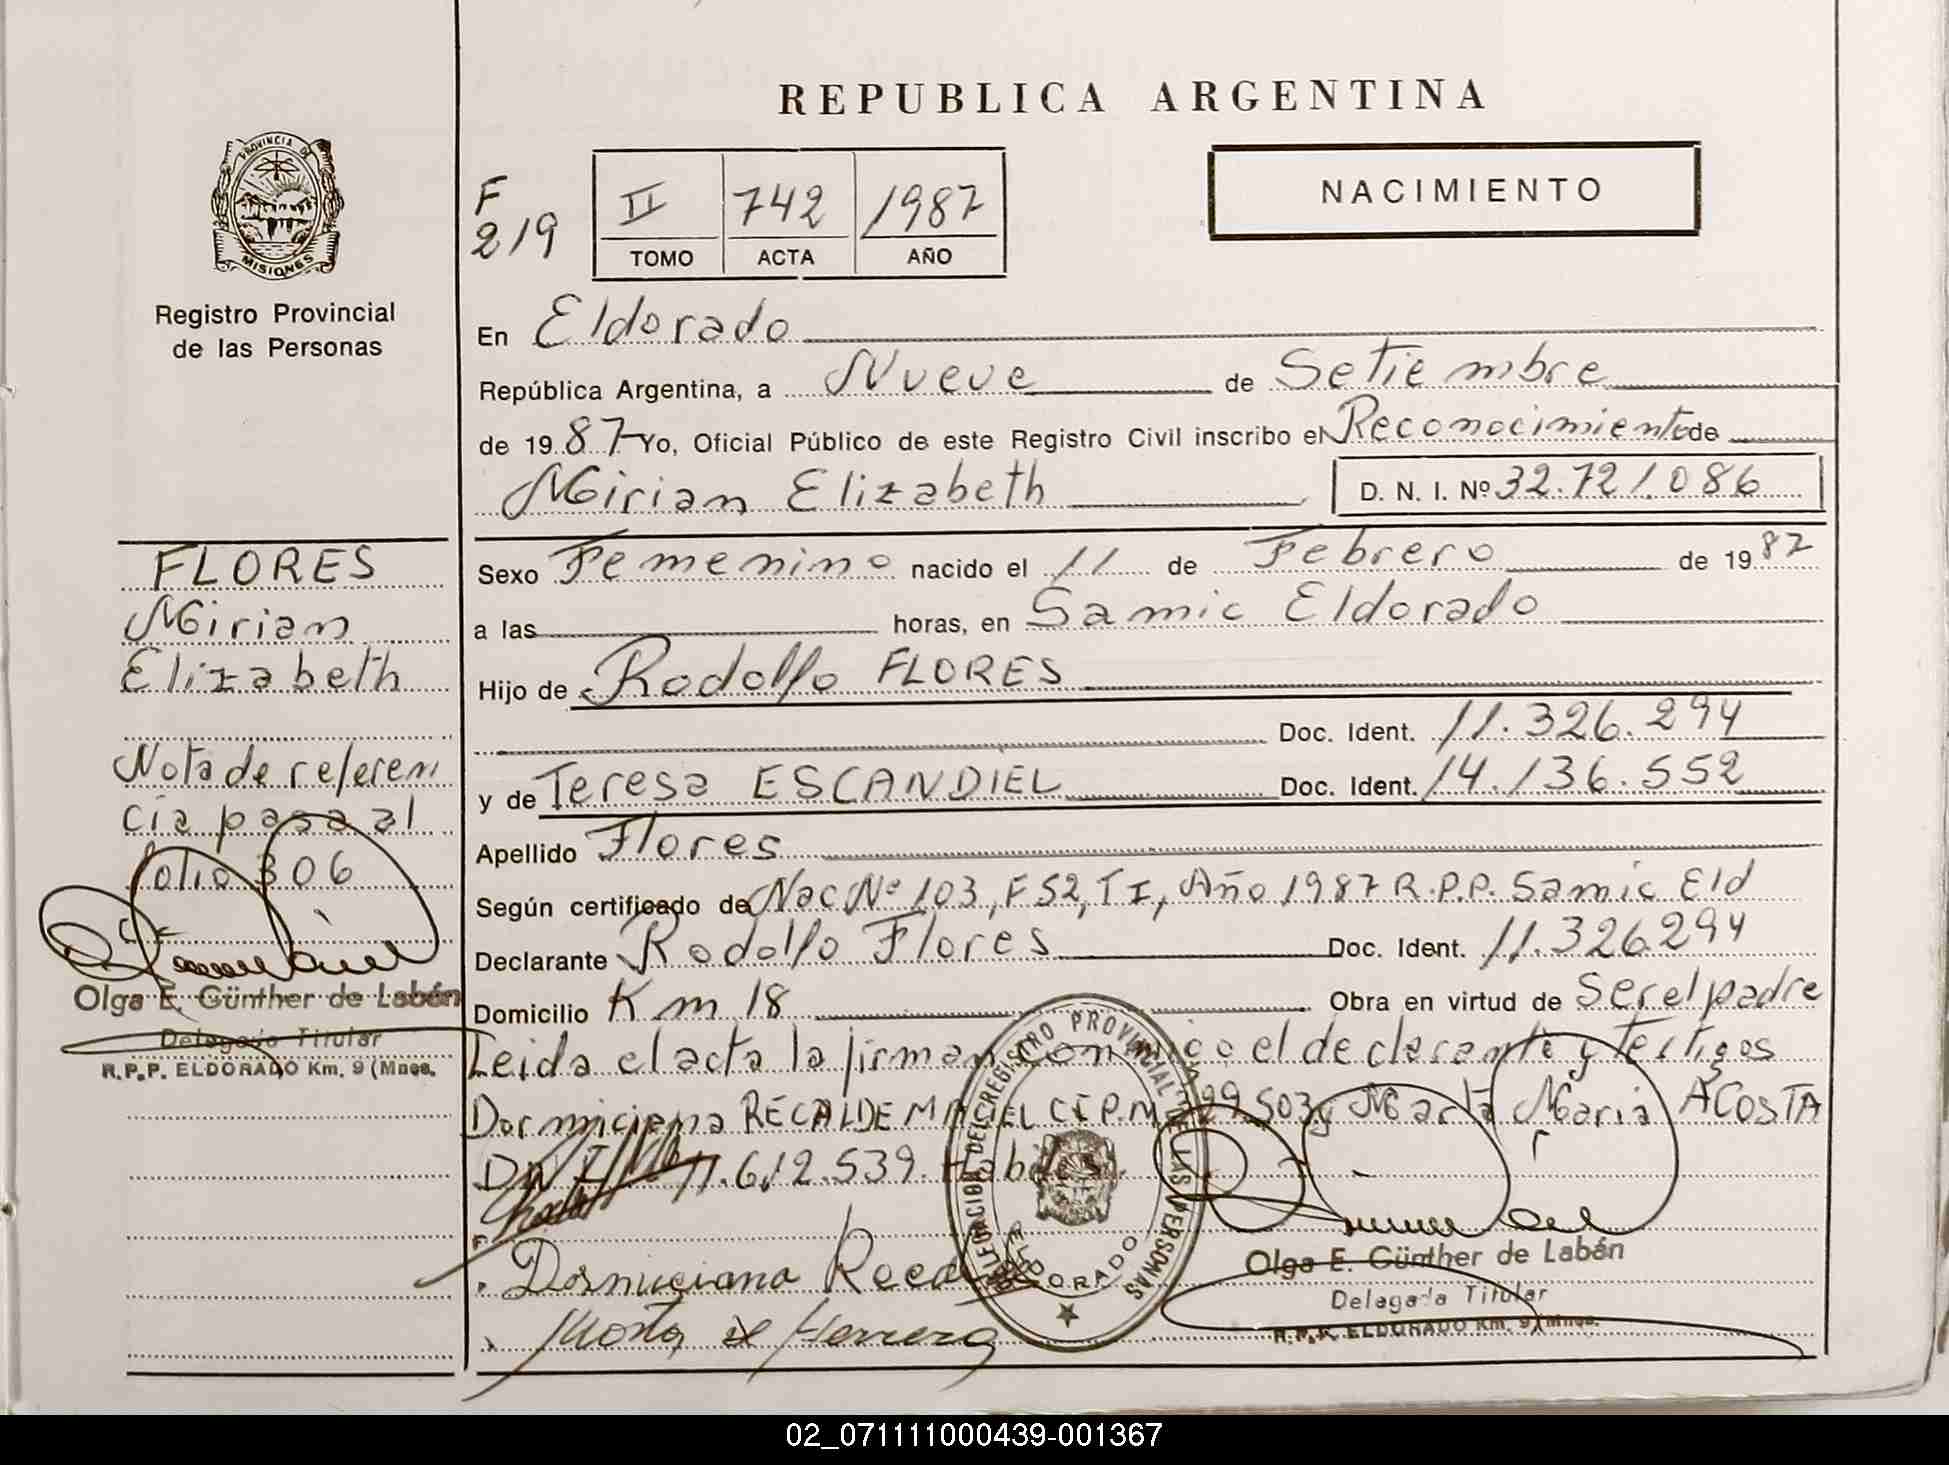 REPUBLICA ARGENTINA
PROVINCIA DE
MISIONES
Registro Provincial
de las Personas
F
219
II 742 1987
TOMO ACTA AÑO
NACIMIENTO
En Eldorado
República Argentina, a Nueve de Setiembre
de 1987 Yo, Oficial Público de este Registro Civil inscribo el Reconocimiento de
Mirian Elizabeth D. N. I. Nº 32.721.086
Sexo Femenino nacido el 11 de Febrero de 1987
a las horas, en Samic Eldorado
Hijo de Rodolfo FLORES
Doc. Ident. 11.326.294
y de Teresa ESCANDIEL Doc. Ident. 14.136.552
Apellido Flores
Según certificado de Nac Nº 103, F52, TI, Año 1987 R.P.P. Samic Eld
Declarante Rodolfo Flores Doc. Ident. 11.326.294
Domicilio Km 18 Obra en virtud de Ser el padre
Leida el acta la firman conmigo el declarante y testigos
Dormiciana RECALDE MACIEL CI P.M. 99.503 y Marta Maria ACOSTA
DNI 11.612.539.
Dormiciana
Marta de Herrera
DELEGACION DEL REGISTRO PROVINCIAL DE LAS PERSONAS
ELDORADO
Olga E. Günther de Labán
Delegada Titular
R.P.P. ELDORADO Km. 9 (Mnes.
FLORES
Mirian
Elizabeth
Nota de referen
cia pasa al
folio 306
Olga E. Günther de Labán
Delegada Titular
R.P.P. ELDORADO Km. 9 (Mnes.
02_071111000439-001367